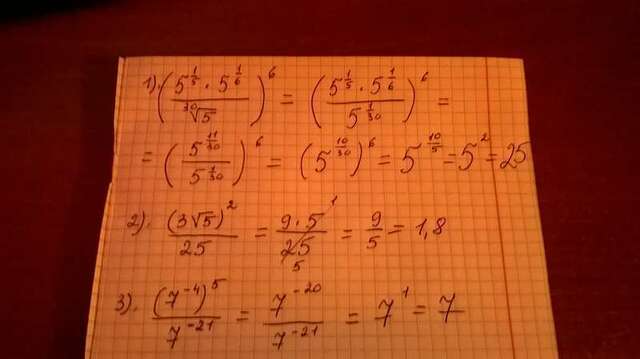 1). ((5^(1/5) · 5^(1/6))/(³⁰√5))^6 = ((5^(1/5) · 5^(1/6))/(5^(1/30)))^6 =
= ((5^(11/30))/(5^(1/30)))^6 = (5^(10/30))^6 = 5^(10/5) = 5^2 = 25
2). (3√5)^2/25 = (9·5 1)/(25 5) = 9/5 = 1,8
3). (7^(-4))^5/7^(-21) = 7^(-20)/7^(-21) = 7^1 = 7